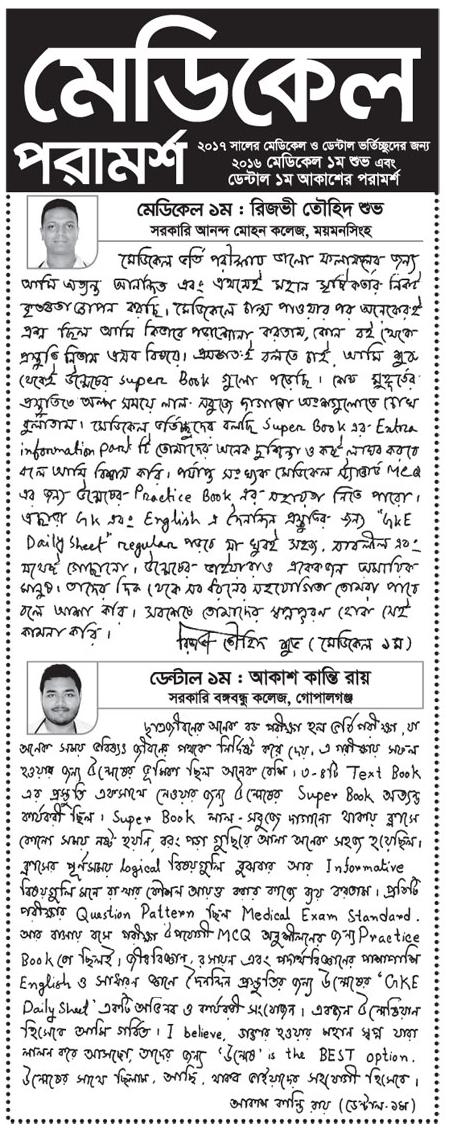 মেডিকেল
পরামর্শ
২০১৭ সালের মেডিকেল ও ডেন্টাল ভর্তিচ্ছুদের জন্য
২০১৬ মেডিকেল ১ম শুভ এবং
ডেন্টাল ১ম আকাশের পরামর্শ
মেডিকেল ১ম : রিজভী তৌহিদ শুভ
সরকারি আনন্দ মোহন কলেজ, ময়মনসিংহ
মেডিকেল ভর্তি পরীক্ষায় ভালো ফলাফলের জন্য
আমি অত্যন্ত আনন্দিত এবং এজন্যেই মহান সৃষ্টিকর্তার নিকট
কৃতজ্ঞতা জ্ঞাপন করছি। মেডিকেলে চান্স পাওয়ার পর অনেকেরই
প্রশ্ন ছিল আমি কিভাবে পড়াশোনা করতাম, কোন বই থেকে
প্রস্তুতি নিতাম এসব বিষয়ে। প্রথমত-ই বলতে চাই, আমি শুরু
থেকেই উন্মেষের Super Book গুলো পড়েছি। শেষ মুহূর্তের
প্রস্তুতিতে অল্প সময়ে লাল-সবুজে দাগানো অংশগুলোতে চোখ
বুলাতাম। মেডিকেল ভর্তিচ্ছুদের বলছি Super Book এর Extra
information Part টি তোমাদের অনেক দুশ্চিন্তা ও কষ্ট লাঘব করবে
বলে আমি বিশ্বাস করি। পর্যাপ্ত সংখ্যক মেডিকেল স্ট্যান্ডার্ড MCQ
এর জন্য উন্মেষের Practice Book এর সহায়তা নিতে পারো।
এছাড়া GK এবং English এ দৈনন্দিন প্রস্তুতির জন্য "GKE
Daily Sheet" regular পড়বে যা খুবই সহজ, সাবলীল এবং
যথেষ্ট গোছানো। উন্মেষের ভাইয়ারাও একেকজন অমায়িক
মানুষ। তাদের দিক থেকে সব ধরনের সহযোগিতা তোমরা পাবে
বলে আশা করি। সবশেষে তোমাদের স্বপ্নপূরণ হোক সেই
কামনা করি।
রিজভী তৌহিদ শুভ (মেডিকেল ১ম)
ডেন্টাল ১ম : আকাশ কান্তি রায়
সরকারি বঙ্গবন্ধু কলেজ, গোপালগঞ্জ
ছাত্রজীবনের অনেক বড় পরীক্ষা হল ভর্তি পরীক্ষা, যা
অনেক সময় ভবিষ্যৎ জীবনের পথকে নির্দিষ্ট করে দেয়, এ পরীক্ষায় সফল
হওয়ার জন্য উন্মেষের ভূমিকা ছিল অনেক বেশি। ৩-৪টি Text Book
এর প্রস্তুতি একসাথে নেওয়ার জন্য উন্মেষের Super Book অত্যন্ত
কার্যকরী ছিল। Super Book লাল-সবুজে দাগানো থাকায় ক্লাসে
কোনো সময় নষ্ট হয়নি, বরং পড়া গুছিয়ে আনা অনেক সহজ হয়েছিল।
ক্লাসের পূর্ণসময় logical বিষয়গুলি বুঝবার আর Informative
বিষয়গুলি মনে রাখার কৌশল আয়ত্ত করার কাজে ব্যয় করতাম। প্রতিটি
পরীক্ষার Question Pattern ছিল Medical Exam Standard.
আর বাসায় বসে পরীক্ষা উপযোগী MCQ অনুশীলনের জন্য Practice
Book তো ছিলই। জীববিজ্ঞান, রসায়ন এবং পদার্থবিজ্ঞানের পাশাপাশি
English ও সাধারণ জ্ঞানে দৈনন্দিন প্রস্তুতির জন্য উন্মেষের 'GKE
Daily Sheet' একটি অভিনব ও কার্যকরী সংযোজন। একজন উন্মেষিয়ান
হিসেবে আমি গর্বিত। I believe, ডাক্তার হওয়ার মহান স্বপ্ন যারা
লালন করে আসছো, তাদের জন্য 'উন্মেষ' is the BEST option.
উন্মেষের সাথে ছিলাম, আছি, থাকব ভাইয়াদের সহযোগী হিসেবে।
আকাশ কান্তি রায় (ডেন্টাল-১ম)